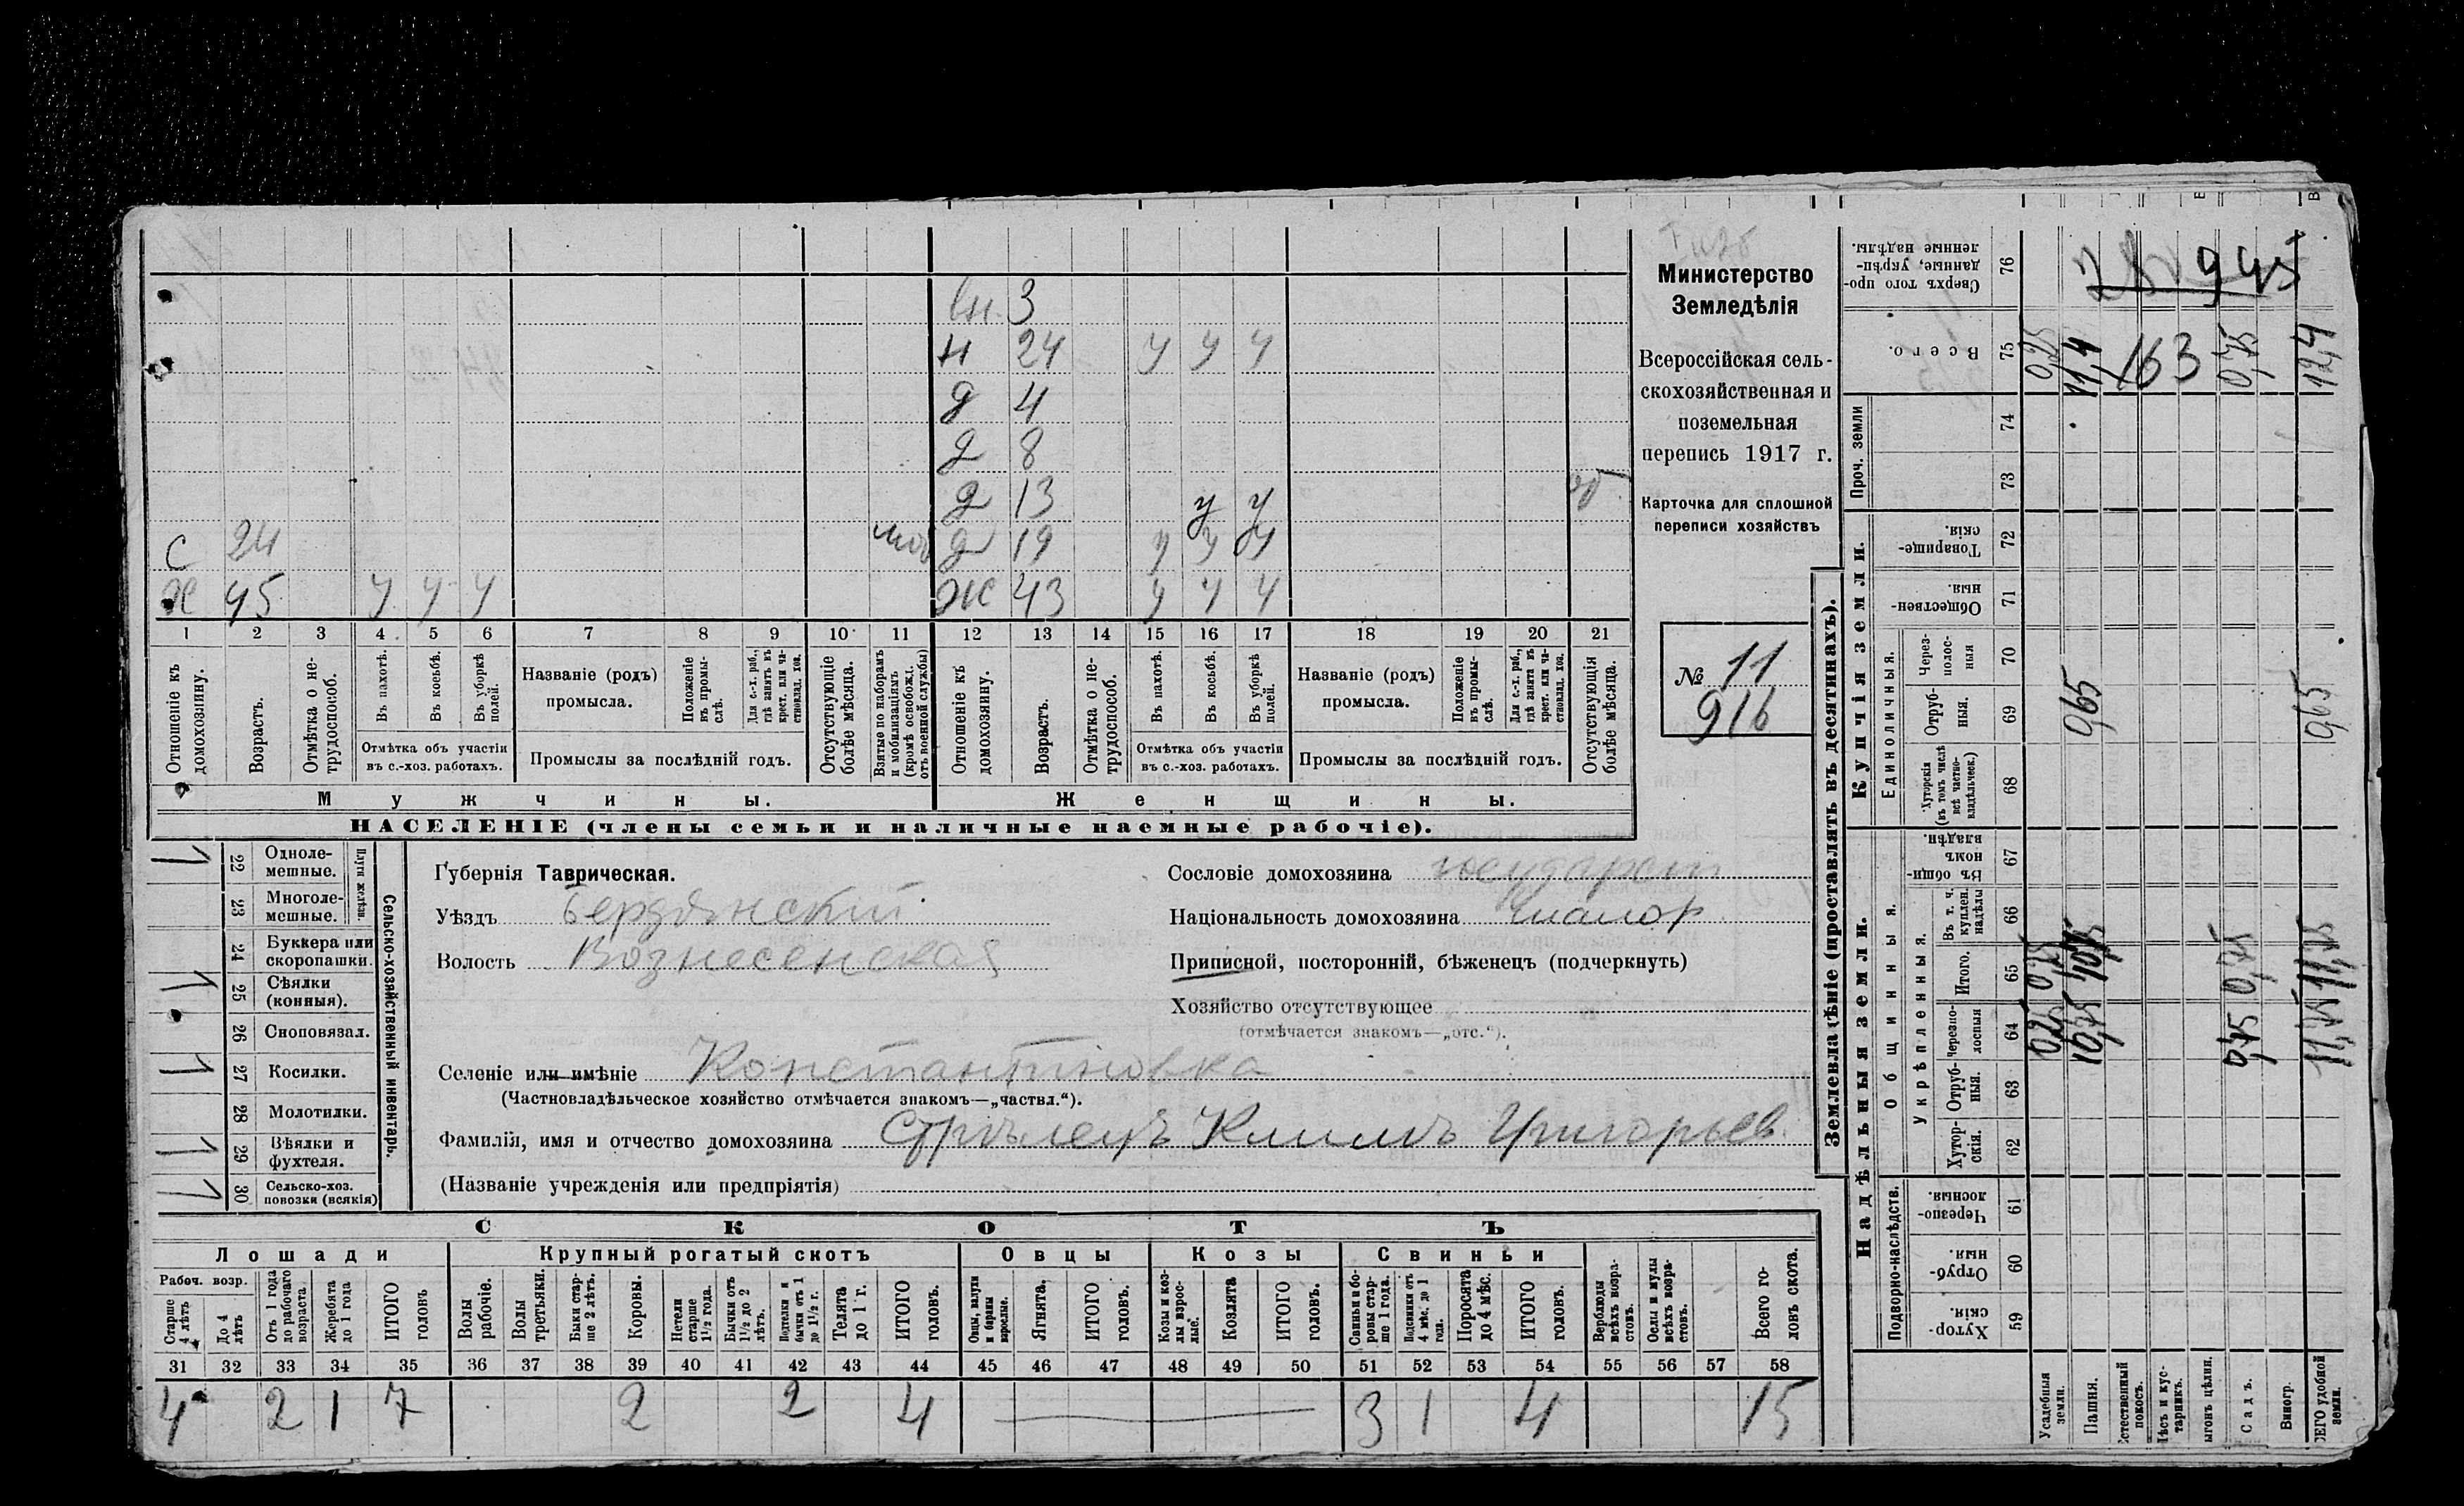 Министерство
Земледѣлія
Всероссійская сель-
скохозяйственная и
поземельная
перепись 1917 г.
Карточка для сплошной
переписи хозяйствъ
№ 11
916
вн. 3
н 24 у у у
д 4
д 8
д 13 у у
С 24 моб д 19 у у у
Х 45 у у у Ж 43 у у у
1 2 3 4 5 6 7 8 9 10 11 12 13 14 15 16 17 18 19 20 21
Отношеніе къ домохозяину.
Возрастъ.
Отмѣтка о не-трудоспособ.
Въ пахотѣ.
Въ косьбѣ.
Въ уборкѣ полей.
Отмѣтка объ участіи
въ с.-хоз. работахъ.
Названіе (родъ)
промысла.
Положеніе въ промы-слѣ.
Для с.-х. раб., гдѣ занятъ въ крест. или ча-стновлад. хоз.
Промыслы за послѣдній годъ.
Отсутствующіе болѣе мѣсяца.
Взятые по наборамъ и мобилизаціямъ (кромѣ освобожд. отъ военной службы)
Отношеніе къ домохозяину.
Возрастъ.
Отмѣтка о не-трудоспособ.
Въ пахотѣ.
Въ косьбѣ.
Въ уборкѣ полей.
Отмѣтка объ участіи
въ с.-хоз. работахъ.
Названіе (родъ)
промысла.
Положеніе въ промы-слѣ.
Для с.-х. раб., гдѣ занята въ крест. или ча-стновлад. хоз.
Промыслы за послѣдній годъ.
Отсутствующія болѣе мѣсяца.
Мужчины.
Женщины.
НАСЕЛЕНІЕ (члены семьи и наличные наемные рабочіе).
Сельско-хозяйственный инвентарь.
Плуги желѣзн.
1 22 Одноле-мешные.
23 Многоле-мешные.
24 Буккера или скоропашки.
1 25 Сѣялки (конныя).
26 Сноповязал.
1 27 Косилки.
28 Молотилки.
1 29 Вѣялки и фухтеля.
1 30 Сельско-хоз. повозки (всякія)
Губернія Таврическая.
Уѣздъ Бердянский
Волость Вознесенская
Сословіе домохозяина государст
Національность домохозяина малор
Приписной, посторонній, бѣженецъ (подчеркнуть)
Хозяйство отсутствующее
(отмѣчается знакомъ—„отс.“).
Селеніе или имѣніе Константиновка
(Частновладѣльческое хозяйство отмѣчается знакомъ—„частвл.“).
Фамилія, имя и отчество домохозяина Стрѣлецъ Климъ Григорьев.
(Названіе учрежденія или предпріятія)
СКОТЪ
Лошади
Крупный рогатый скотъ
Овцы
Козы
Свиньи
Рабоч. возр.
Старше 4 лѣтъ
До 4 лѣтъ
Отъ 1 года до рабочаго возраста
Жеребята до 1 года
ИТОГО головъ
Волы рабочіе.
Волы третьяки.
Быки стар-ше 2 лѣтъ.
Коровы.
Нетели старше 1½ года.
Бычки отъ 1½ до 2 лѣтъ.
Подтелки и бычки отъ 1 до 1½ г.
Телята до 1 г.
ИТОГО головъ.
Овцы, валухи и бараны взрослые.
Ягнята.
ИТОГО головъ.
Козы и коз-лы взрос-лые.
Козлята
ИТОГО головъ.
Свиньи и бо-ровы стар-ше 1 года.
Подсвинки отъ 4 мѣс. до 1 года.
Поросята до 4 мѣс.
ИТОГО головъ.
Верблюды всѣхъ возра-стовъ.
Ослы и мулы всѣхъ возра-стовъ.
Всего го-ловъ скота.
31 32 33 34 35 36 37 38 39 40 41 42 43 44 45 46 47 48 49 50 51 52 53 54 55 56 57 58
4 2 1 7 2 2 4 3 1 4 15
Землевладѣніе (проставлять въ десятинахъ).
Надѣльныя земли.
Купчія земли.
Проч. земли
Подворно-наслѣдств.
Общинныя.
Укрѣпленныя.
Единоличныя.
Хутор-скія. 59
Отруб-ныя. 60
Черезпо-лосныя. 61
Хутор-скія. 62
Отруб-ныя. 63
Черезпо-лосныя 64
Итого. 65
Въ т. ч. куплен. надѣлы 66
Въ общин-номъ владѣн. 67
Хуторскія (въ томъ числѣ всѣ частно-владѣльческ.) 68
Отруб-ныя. 69
Через-полос-ныя 70
Обществен-ныя. 71
Товарище-скія. 72
73
74
Всего. 75
Сверхъ того про-данные, укрѣп-ленные надѣлы. 76
Усадебныя земли. 0,25 0,25 0,25
Пашня. 10,75 10,75 0,65 11,4
Естественный покосъ.
Лѣсъ и кус-тарникъ.
Выгонъ цѣлин.
Садъ. 0,75 0,75 0,75
Виногр.
ВСЕГО удобной земли. 11,75 11,75 0,65 12,4
163
28 945